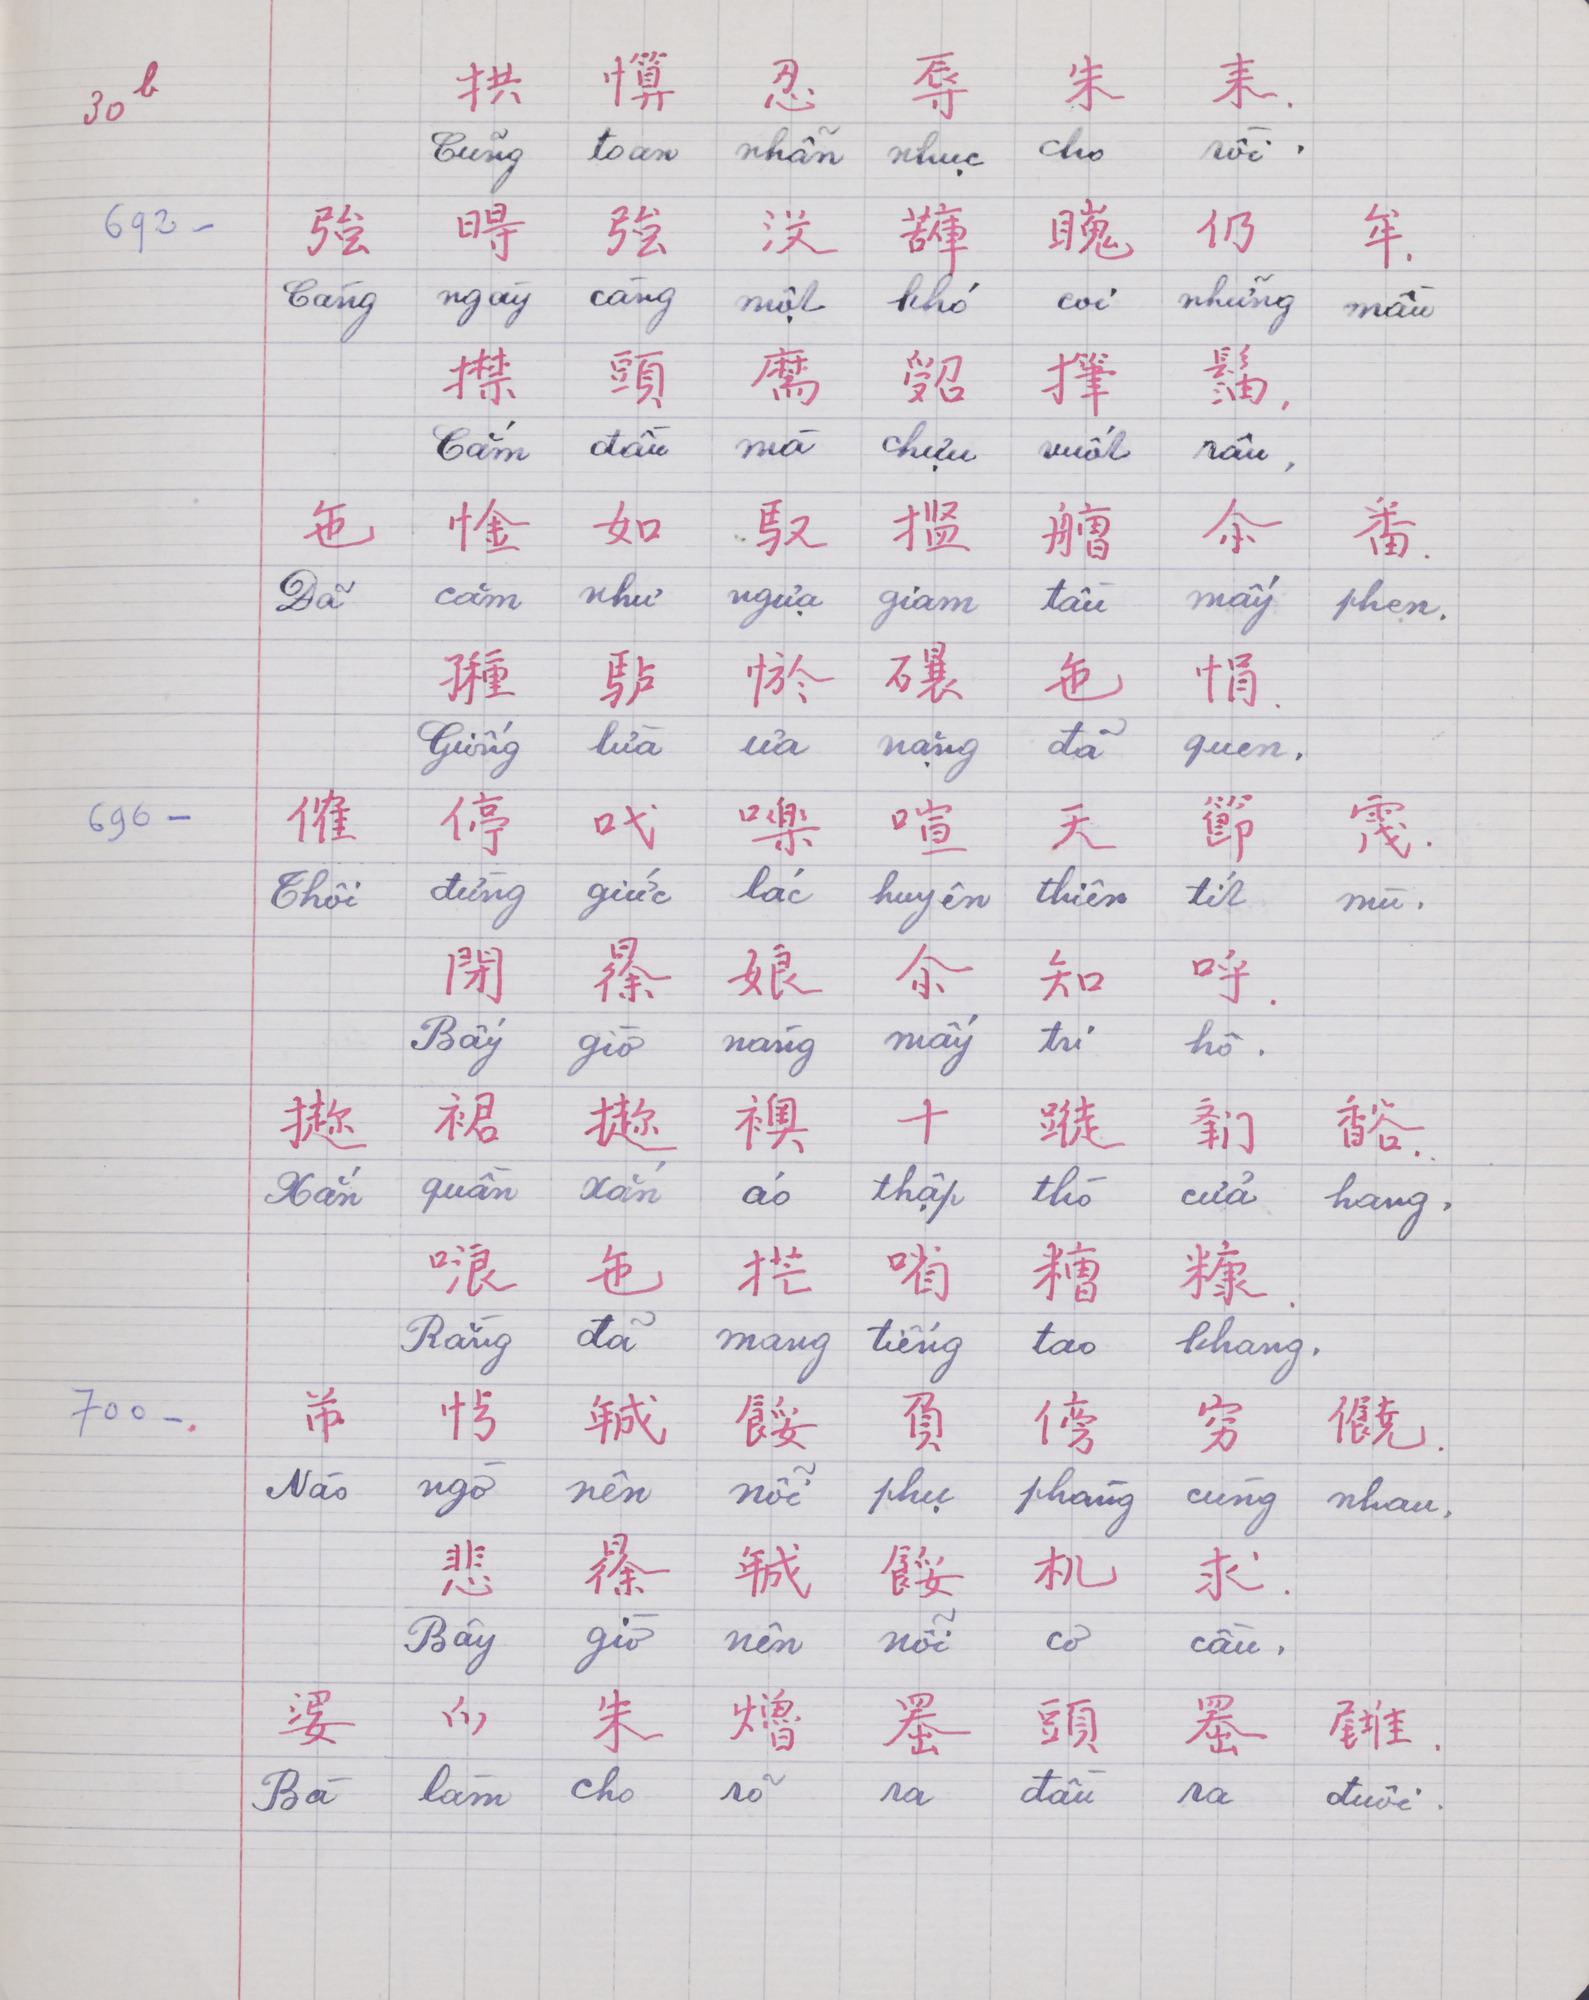 30b
拱 惲 忍 辱 朱 耒.
Cũng toan nhẫn nhục cho rồi.
692- 強 㝵 強 沒 䁛 仍 牟.
Càng ngày càng một khó coi những mầu
㩒 頭 麽 㨔 鬚.
Cắm đầu mà chịu vuốt râu,
㐌 惍 如 馭 㨫 艚 余 番.
Đã căm như ngựa giam tầu mấy phen.
䭾 㤇 㐌 悁.
Giống lừa ưa nặng đã quen.
696- 催 停 㖇 喧 天 節 霚.
Thôi đừng giức lác huyên thiên tít mù.
閉 娘 余 知 呼.
Bấy giờ nàng mấy tri hô.
裙 襖 十 香谷.
Xắn quần xắn áo thập thò cửa hang.
哴 㐌 㧅 㗂 糟 糠.
Rằng đã mang tiếng tao khang.
700-. 芇 𢢆 餒 負 傍 穷 饒.
Nào ngờ nên nỗi phụ phàng cùng nhau.
悲 餒 机 求.
Bây giờ nên nỗi cơ cầu.
婆 朱 熷 頭.
Bà làm cho rõ ra đầu ra đuôi.